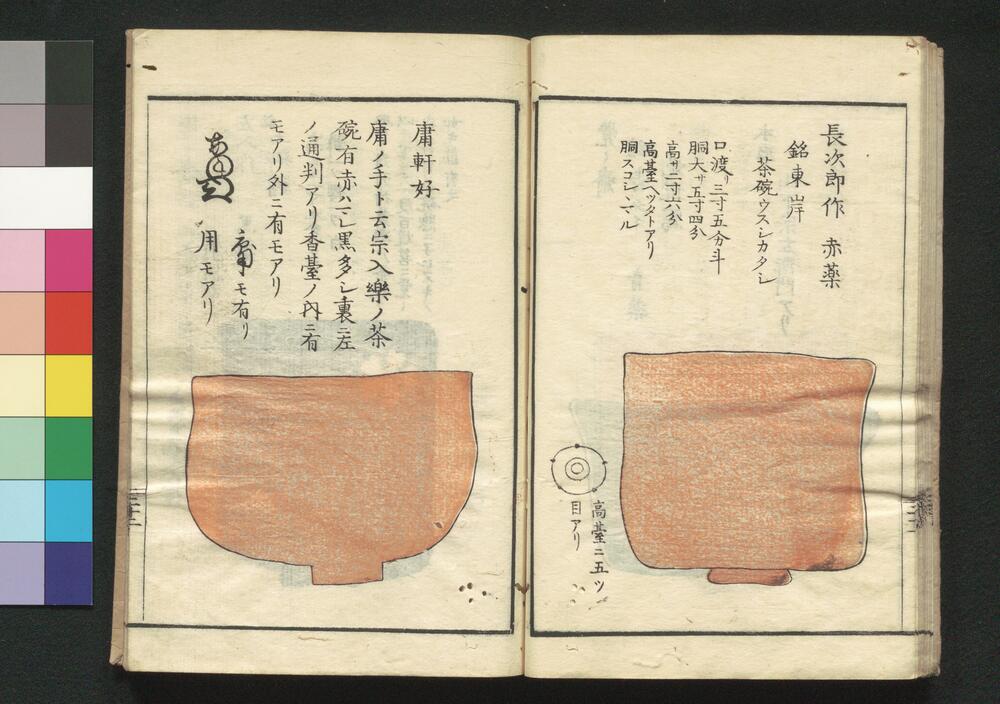 長次郎作 赤薬
銘東岸
茶碗ウスシカタシ
口渡リ三寸五分斗
胴大サ五寸四分
高サ二寸六分
高臺ヘツタトアリ
胴スコシマル
高臺ニ五ツ
目アリ
庸軒好
庸ノ手ト云宗入樂ノ茶
碗有赤ハマレ黒多シ裏ニ左
ノ通判アリ香臺ノ內ニ有
モアリ外ニ有モアリ
モ有リ
用モアリ